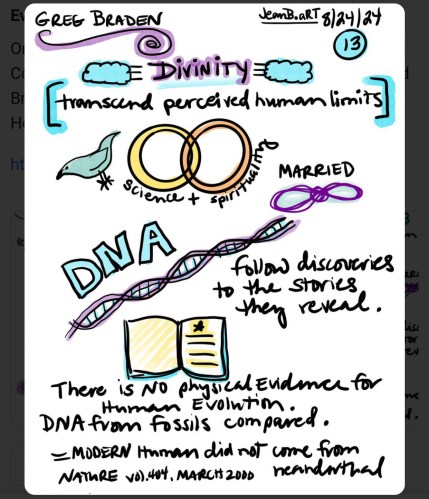 GREG BRADEN
JeanB.aRT 8/24/24
13
DIVINITY
[transcend perceived human limits]
science + spirituality
MARRIED
DNA
follow discoveries
to the stories
they reveal.
There is NO physical Evidence for
Human Evolution.
DNA from fossils compared.
= MODERN Human did not come from
neanderthal
NATURE vol.404, MARCH 2000